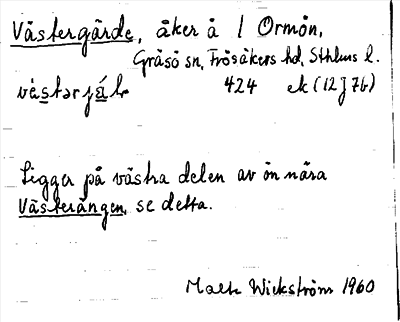 Västergärde, åker å 1 Ormön,
Gräsö sn, Frösåkers hd, Sthlms l.
424 ek (12J7b)
Ligger på västra delen av ön nära
Västerängen, se detta.
Malte Wickström 1960